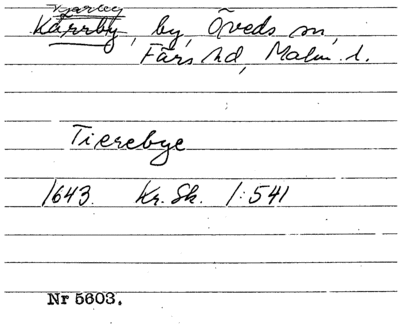 Kärrby, by, Öveds sn,
Färs hd, Malm. l.
Tierebye
1643. Kr. Sk. 1:541
Nr 5603.